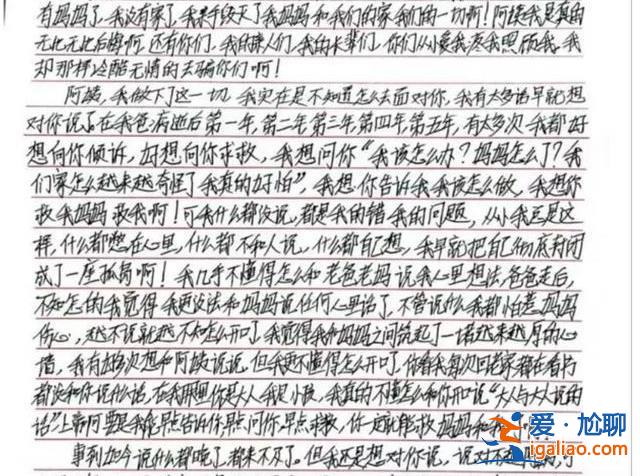 有妈妈了,我没有家了,我亲手毁灭了我妈妈和我们的家我们的一切啊!阿姨我是真的
无比无比后悔啊,还有你们,我的亲人们,我的长辈们,你们从小爱我疼我照顾我,我
却那样冷酷无情的去骗你们啊!
阿姨,我做下了这一切,我实在是不知道怎么去面对你,我有太多话早就想
对你说了。在我爸病逝后第一年,第二年第三年,第四年第五年,有太多次我都好
想向你倾诉,好想向你求救,我想问你“我该怎么办?妈妈怎么了?我
们家怎么越来越奇怪了我真的好怕”,我想你告诉我我该怎么做,我想你
救我妈妈救我啊!可我什么都没说,都是我的错我的问题,从小我总是这
样,什么都憋在心里,什么都不和人说,什么都自己想,我早就把自己彻底封闭
成了一座孤岛啊!我几乎不懂得怎么和老爸老妈说我心里想法,爸爸走后,
不知怎的我觉得我更没法和妈妈说任何心里话了,不管说什么我都怕惹妈妈
伤心,越不说就越不知怎么开口了,我觉得我和妈妈之间筑起了一堵越来越厚的心
墙,我有好多次想和阿姨说说,但我更不懂得怎么开口了,你看我每次回老家都在看书
都没和你说什么话,在我眼里你是大人我是小孩,我真的不懂怎么和你开口说“大人与大人说的
话”上帝啊要是我能早点告诉你早点问你,早点求救,你一定就能救妈妈和我
事到如今说什么都晚了,都来不及了。但我还是想对你说,说对不起
爱·尬聊
igaliao.com